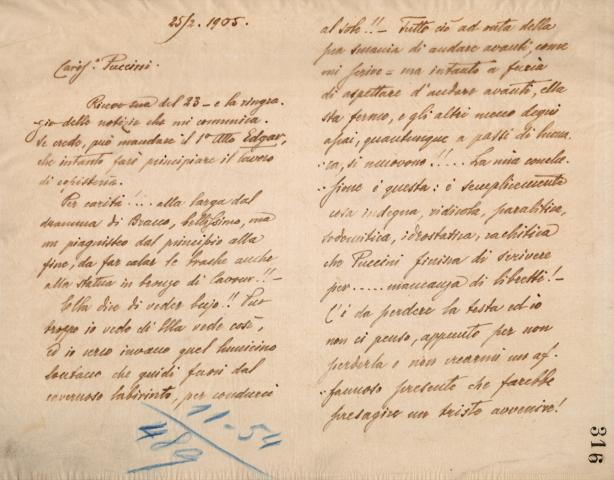 25/2. 1905.
Cariss.º Puccini.
Ricevo sua del 23 - e la ringra-
zio delle notizie che mi comunica.
Se crede, può mandare il 1º Atto Edgar,
che intanto farò principiare il lavoro
di copisteria.
Per carità!... alla larga dal
dramma di Bracco, bellissimo, ma
un piagnisteo dal principio alla
fine, da far calar le brache anche
alla statua in bronzo di Cavour!!-
Ella dice di veder bujo!! Pur
troppo io vedo che Ella vede così,
ed io cerco invano quel lumicino
lontano che guidi fuori dal
cavernoso labirinto, per condurci
al sole!!- Tutto ciò ad onta della
sua smania di andare avanti, come
mi scrive = ma intanto a furia
di aspettare d'andare avanti, ella
sta fermo, e gli altri meno degni
assai, quantunque a passi di luma-
ca, si muovono!!... La mia conclu-
sione è questa: è semplicemente
cosa indegna, ridicola, paralitica,
sodomitica, idrostatica, rachitica
che Puccini finisca di scrivere
per..... mancanza di libretti!-
C'è da perdere la testa ed io
non ci penso, appunto per non
perderla e non crearmi un af-
fannoso presente che farebbe
presagire un tristo avvenire!
11-54
489
316